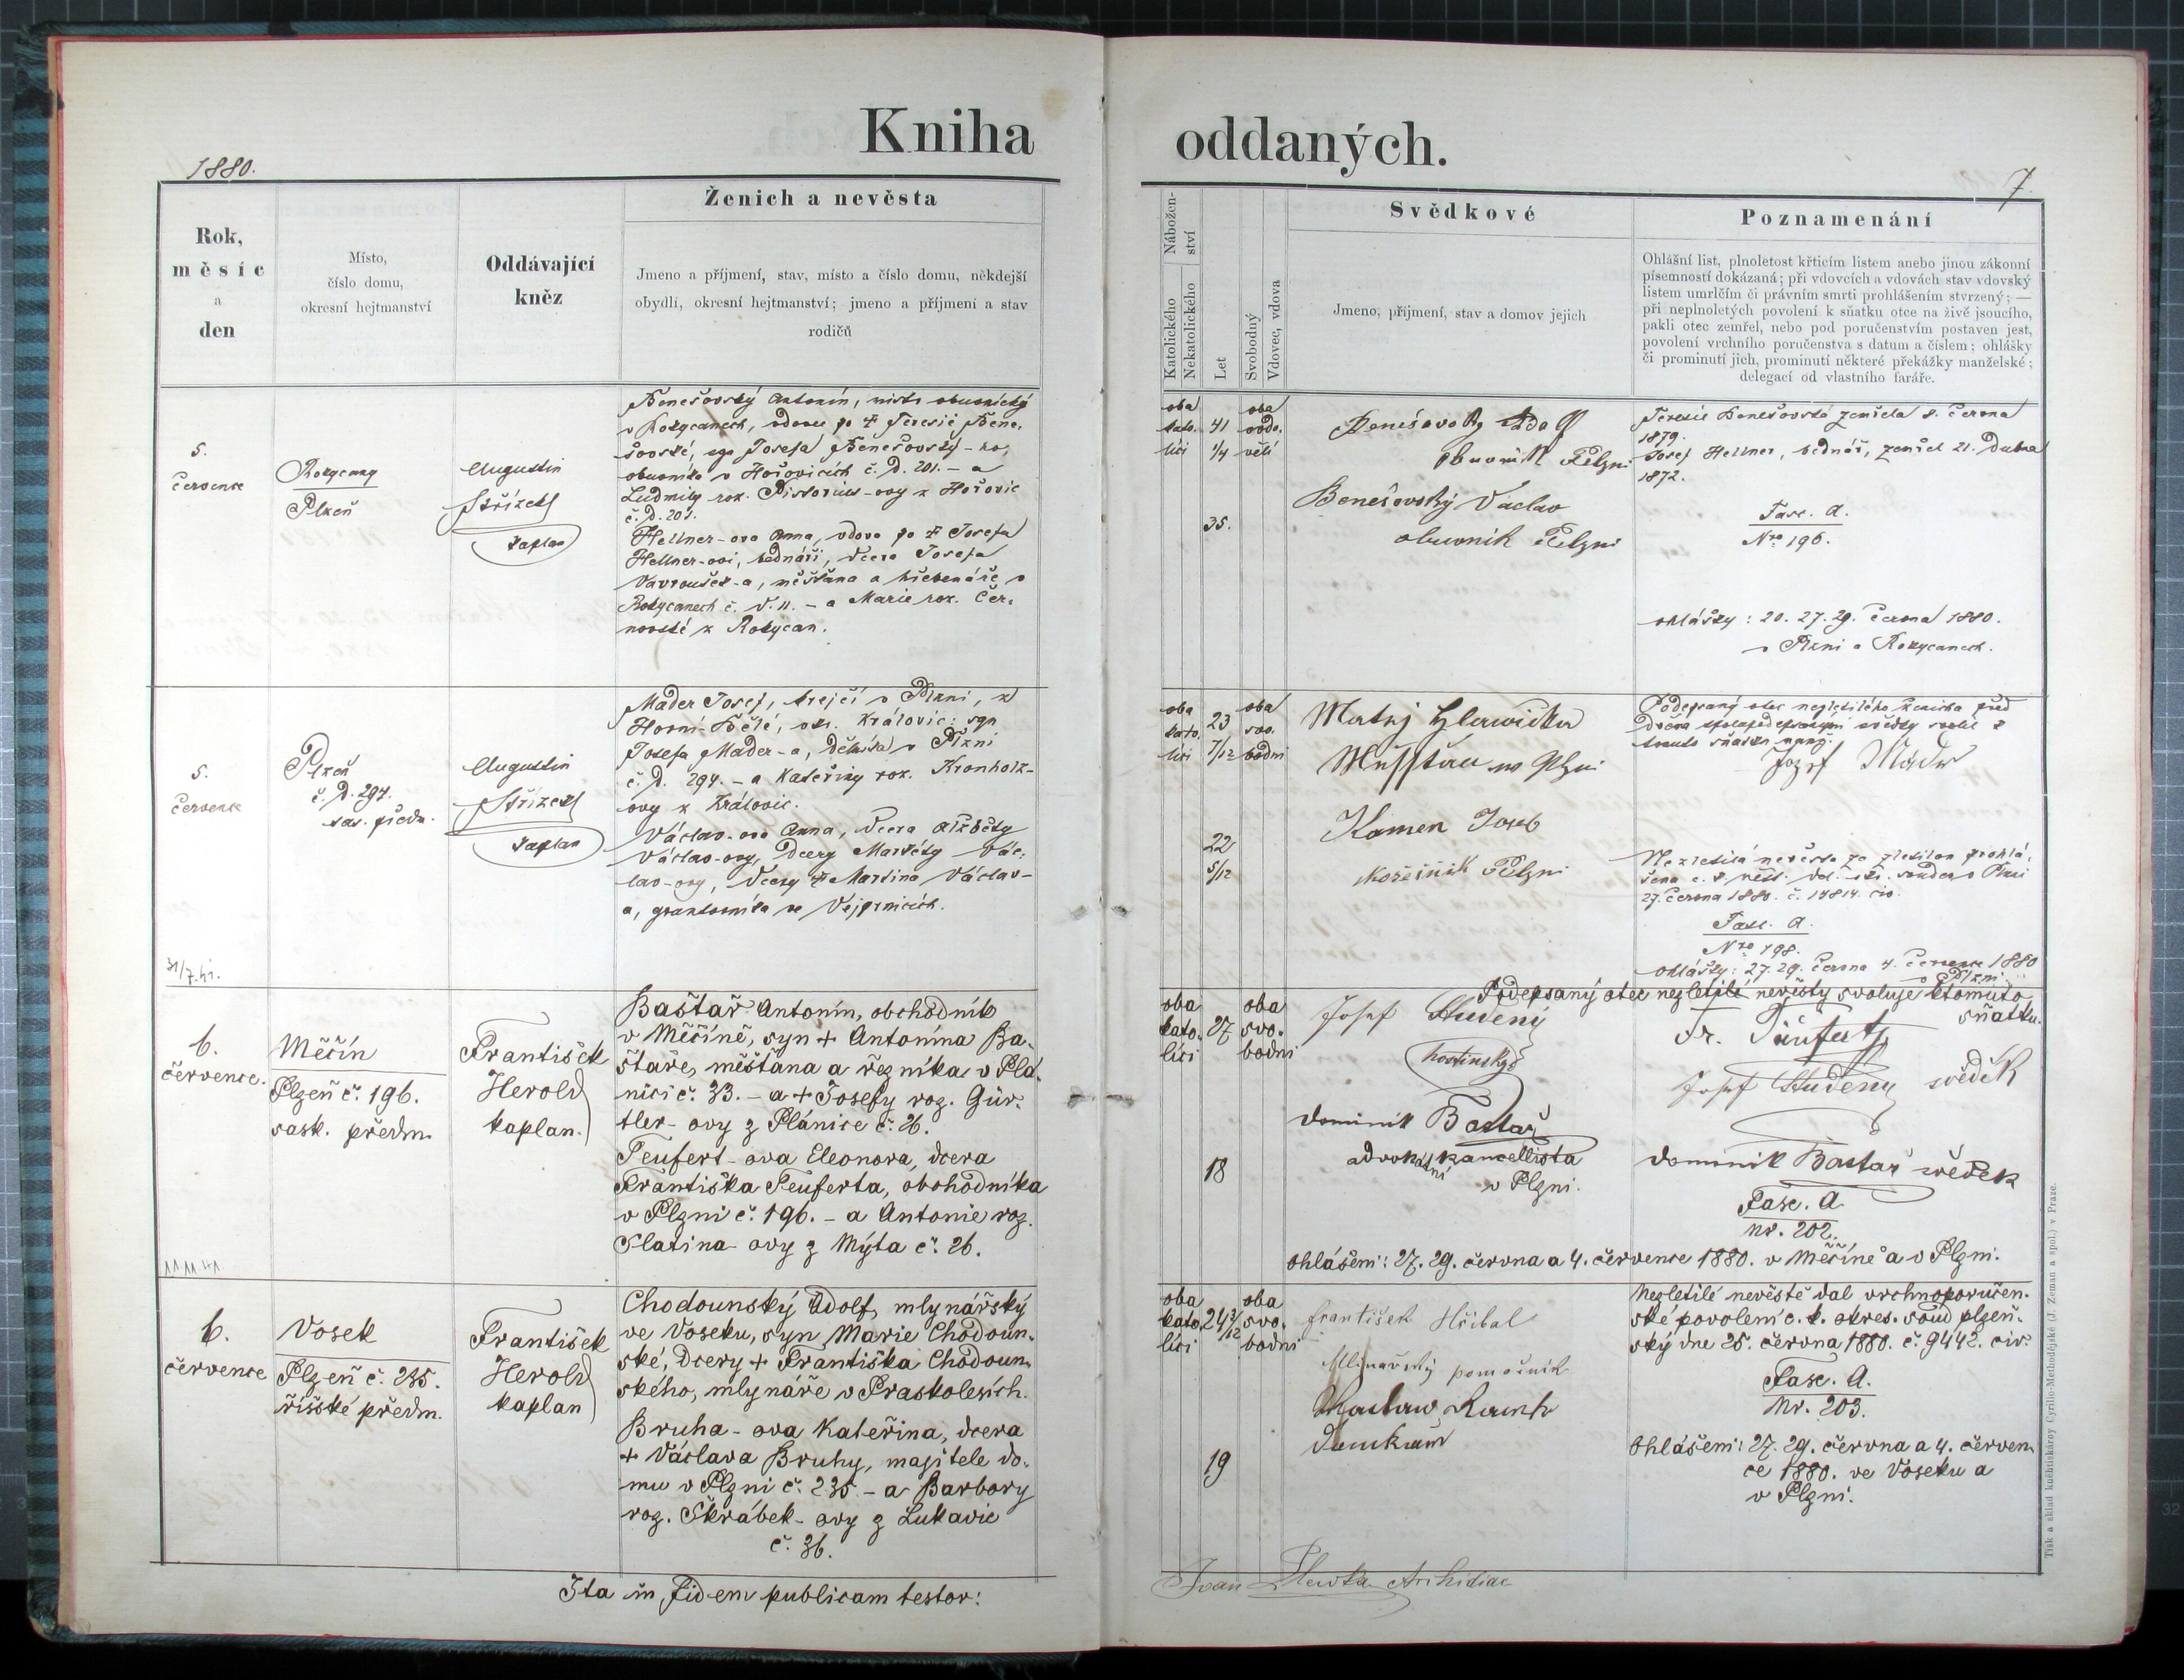 Kniha oddaných.
1880.
7.
Rok,
měsíc
a
den
Místo,
číslo domu,
okresní hejtmanství
Oddávající
kněz
Ženich a nevěsta
Jmeno a příjmení, stav, místo a číslo domu, někdejší
obydlí, okresní hejtmanství; jmeno a příjmení a stav
rodičů
Nábožen-
ství
Katolického
Nekatolického
Let
Svobodný
Vdovec, vdova
Svědkové
Jmeno, příjmení, stav a domov jejich
Poznamenání
Ohlášní list, plnoletost křticím listem anebo jinou zákonní
písemností dokázaná; při vdovcích a vdovách stav vdovský
listem umrlčím či právním smrti prohlášením stvrzený; —
při neplnoletých povolení k sňatku otce na živě jsoucího,
pakli otec zemřel, nebo pod poručenstvím postaven jest,
povolení vrchního poručenstva s datum a číslem; ohlášky
či prominutí jich, prominutí některé překážky manželské;
delegací od vlastního faráře.
5.
července
Rokycany
Plzeň
Augustin
Střízek
kaplan
Benešovský Antonín, mistr obuvnický
v Rokycanech, vdovec po † Teresii Bene-
šovské, syn Josefa Benešovský-ho,
obuvníka v Hořovicích č. d. 201. – a
Ludmily roz. Pistorius-ovy z Hořovic
č. d. 201.
Hellner-ova Anna, vdova po † Josefu
Hellner-ovi, bednáři, dcera Josefa
Vavroušek-a, měšťana a hřebenáře v
Rokycanech č. d. 11. – a Marie roz. Čer-
novské z Rokycan.
oba
kato.
líci
41
1/4
35.
oba
vdo.
vělí
Benešovsky Adolf
Obuvnik Pelzni
Benešovský Václav
obuvnik Pelzni
Teresie Benešovská zemřela 8. června
1879.
Josef Hellner, bednář, zemřel 21. dubna
1872.
Fasc. A.
Nro 196.
ohlášky: 20. 27. 29. června 1880.
v Plzni a Rokycanech.
5.
července
Plzeň
č. d. 294.
sas. předm.
Augustin
Střízek
kaplan
Mader Josef, krejčí v Plzni, z
Horní-Bělé, okr. Královic; syn
Josefa Mader-a, dělníka v Plzni
č. d. 294. – a Kateřiny roz. Kronholz-
ovy z Královic.
Václav-ova Anna, dcera Alžběty
Václav-ovy, dcery Markéty Vác-
lav-ovy, dcery † Martina Václav-
a, gruntovníka ve Vejprnicích.
31/7.41.
oba
kato.
líci
23
7/12
22
5/12
oba
svo.
bodni
Matěj Hlawička
Měšťan w Plzni
Kamen Joseb
kožešník Pelzni
Podepsaný otec nezletilého ženicha před
dvěma spolupodepsanými svědky svolil k
tomuto sňatku manž.
Jozef Madr
Nezletilá nevěsta za zletilou prohlá-
šena c. k. měst. del. okr. soudem v Plzni
27. června 1880. č. 14814. civ.
Fasc. A.
Nro 198.
Ohlášky: 27. 29. června 4. července 1880
v Plzni.
6.
července.
Měčín
Plzeň č. 196.
sask. předm.
František
Herold
kaplan.
Baštař Antonín, obchodník
v Měčíně, syn + Antonína Ba-
štaře, měštana a řezníka v Plá-
nici č. 33. – a + Josefy roz. Gür-
tler-ovy z Plánice č. 26.
Teufert-ova Eleonora, dcera
Františka Teuferta, obchodníka
v Plzni č. 196. – a Antonie roz.
Slatina-ovy z Mýta č. 26.
11.11.41.
oba
kato.
líci
27
18
oba
svo.
bodni
Josef Studený
hostinský
Dominik Bastař
advokátní kancellista
v Plzni.
Podepsaný otec nezletilé nevěsty svoluje k tomuto
sňatku.
Fr. Teufert
Josef Studeny svědek
Dominik Bastař svědek
Fasc. A
nr. 202.
Ohlášeni: 27. 29. června a 4. července 1880. v Měčíně a v Plzni.
6.
července
Vosek
Plzeň č. 235.
říšské předm.
František
Herold
kaplan
Chodounský Adolf, mlynářský
ve Voseku, syn Marie Chodoun-
ské, dcery + Františka Chodoun-
ského, mlynáře v Praskolesích.
Bruha-ova Kateřina, dcera
+ Václava Bruhy, majitele do-
mu v Plzni č. 235. – a Barbory
roz. Škrábek-ovy z Lukavic
č. 36.
oba
kato.
líci
24 3/12
19
oba
svo.
bodni
František Hřibal
Mlinařský pomočník
Nezletilé nevěstě dal vrchnoporučen-
ské povolení c. k. okres. soud plzeň-
ský dne 25. června 1880. č. 9442. civ.
Fasc. A.
Nr. 203.
Ohlášeni: 27. 29. června a 4. červen-
ce 1880. ve Voseku a
v Plzni.
Ita in fidem publicam testor:
Archidiac
Tisk a sklad knihtiskárny Cyrillo-Methodějské (J. Zeman a spol.) v Praze.